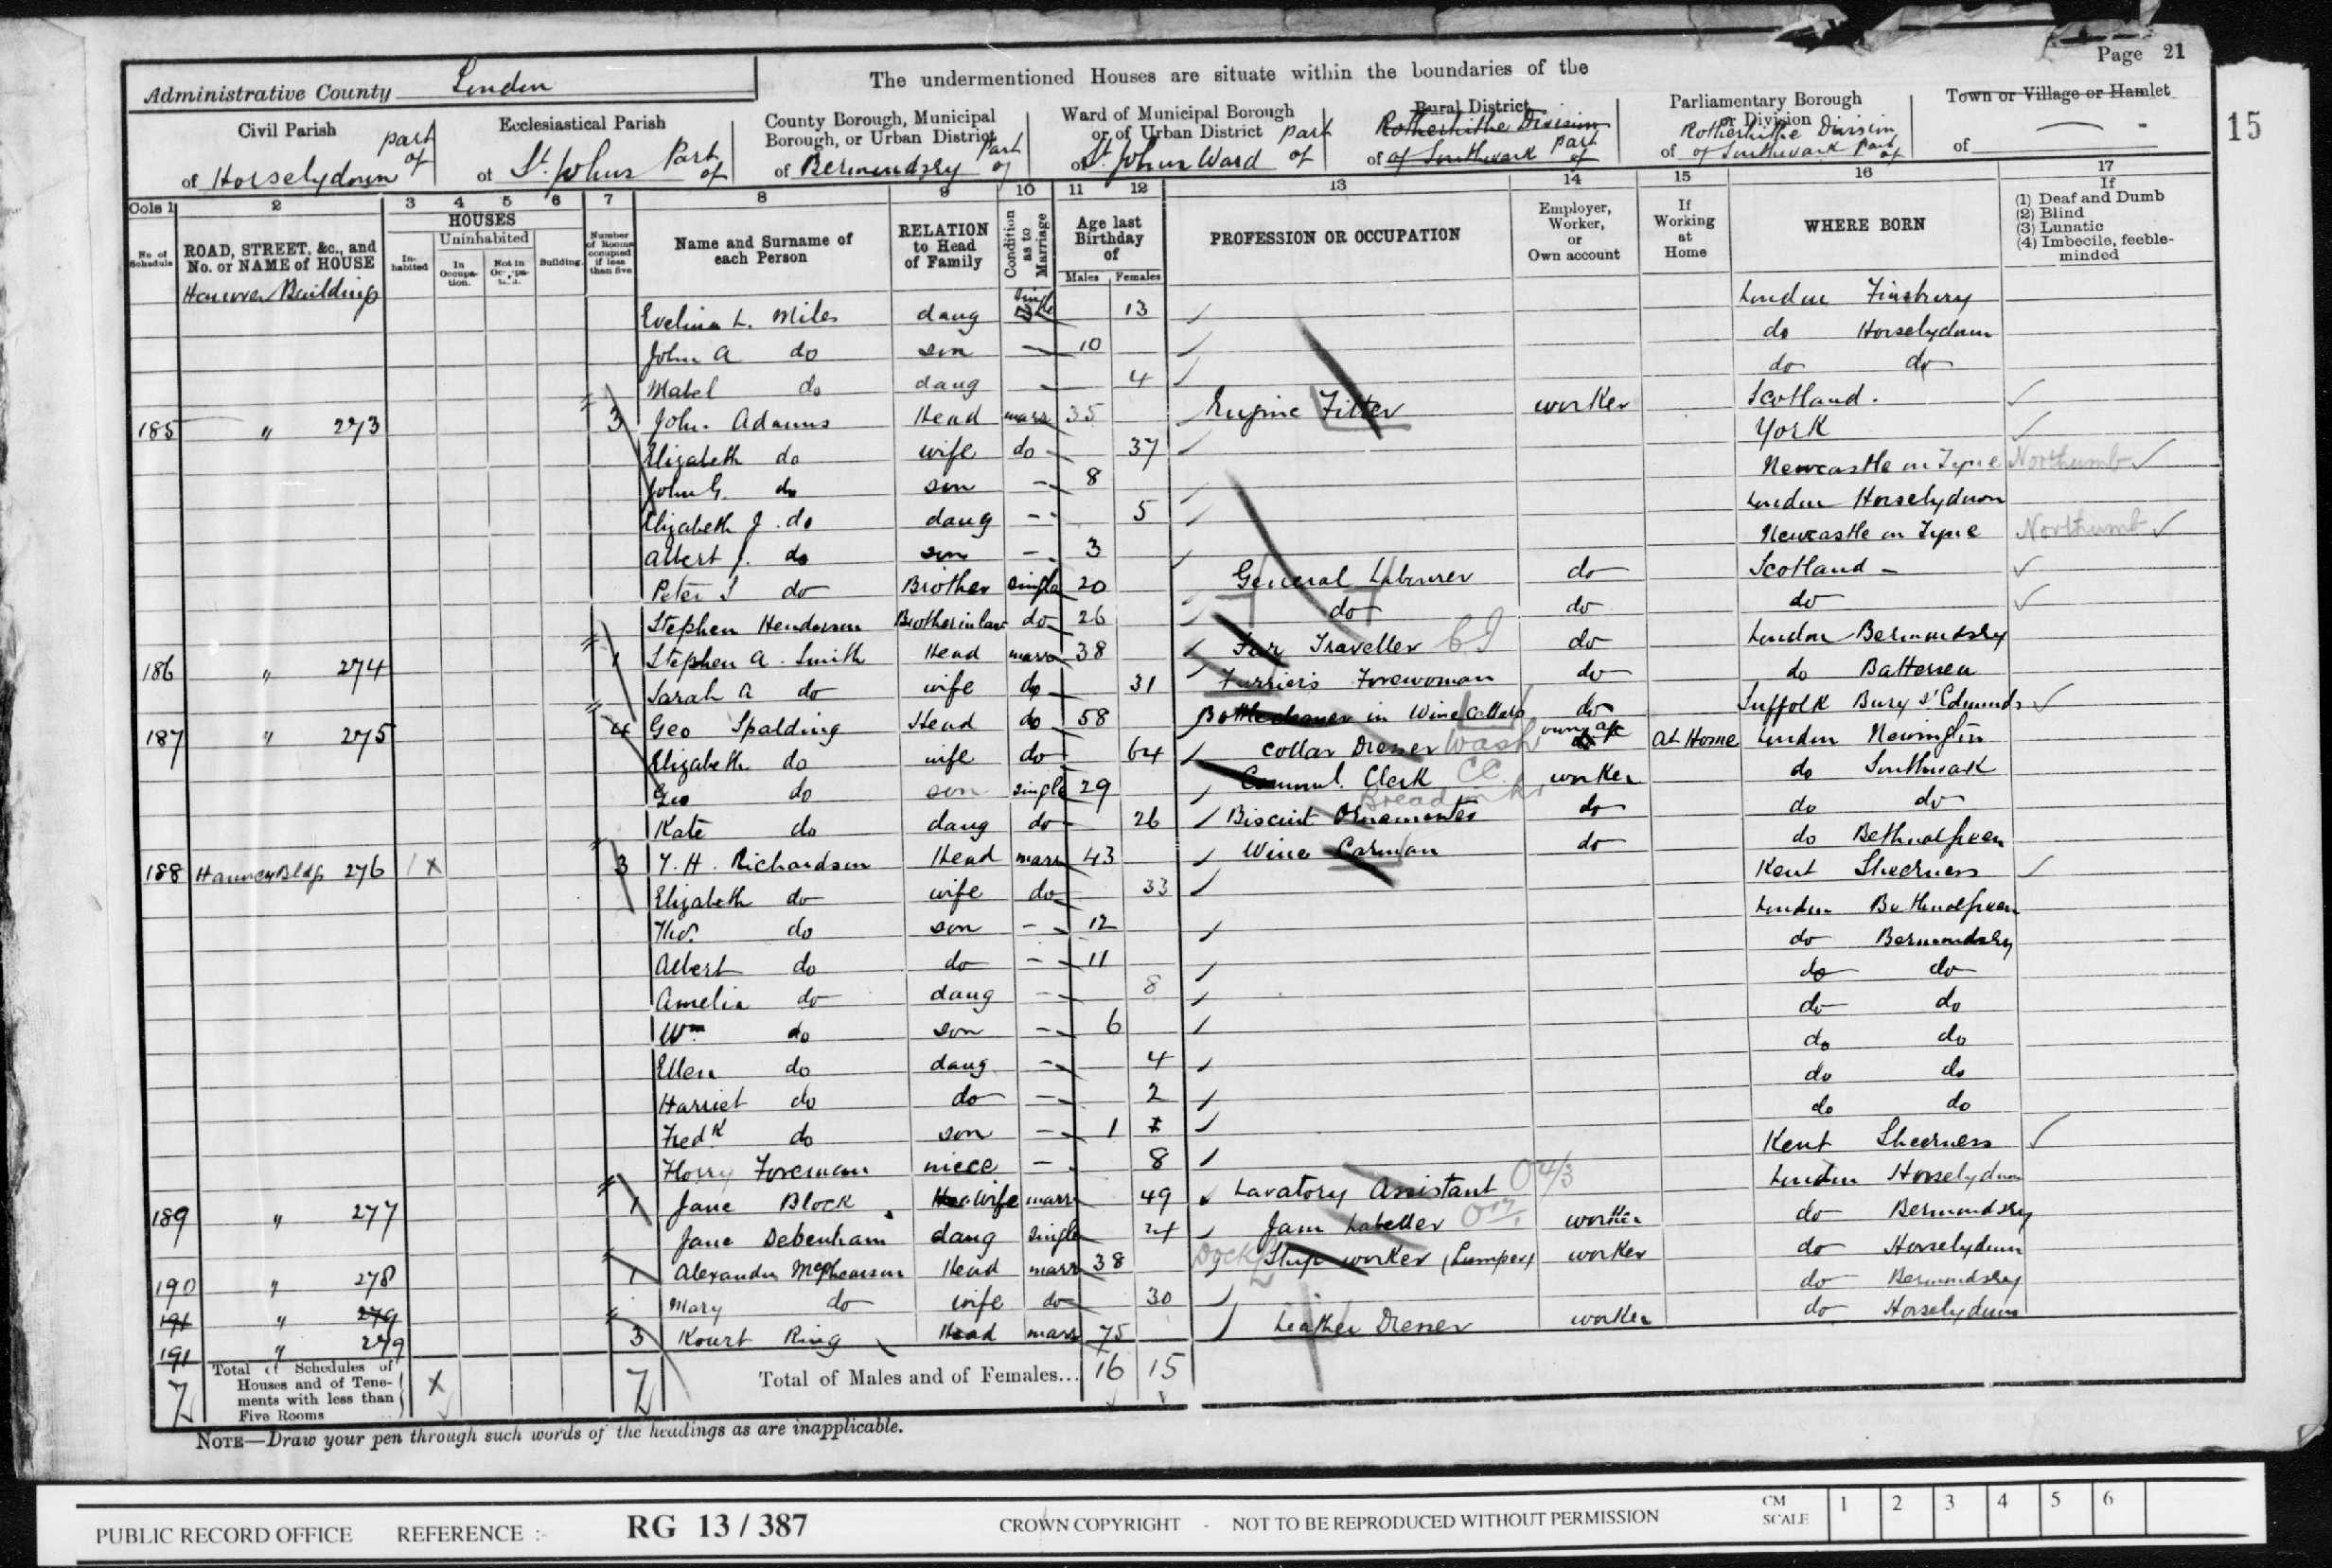 Page 21
15
Administrative County London
The undermentioned Houses are situate within the boundaries of the
Civil Parish part of of Horselydown
Ecclesiastical Parish of St. Johns Part of
County Borough, Municipal Borough, or Urban District of Bermondsey Part of
Ward of Municipal Borough or of Urban District of St. Johns Ward part of
Rural District of Rotherhithe Division of Southwark Part of
Parliamentary Borough or Division of Rotherhithe Division of Southwark Part of
Town or Village or Hamlet of
Cols 1 2 3 4 5 6 7 8 9 10 11 12 13 14 15 16 17
No. of Schedule
ROAD, STREET, &c., and No. or NAME of HOUSE
HOUSES
Inhabited
Uninhabited
In Occupation.
Not in Occupation.
Building.
Number of Rooms occupied if less than five
Name and Surname of each Person
RELATION to Head of Family
Condition as to Marriage
Age last Birthday of
Males Females
PROFESSION OR OCCUPATION
Employer, Worker, or Own account
If Working at Home
WHERE BORN
If (1) Deaf and Dumb (2) Blind (3) Lunatic (4) Imbecile, feeble-minded
Hanover Buildings
Evelina L. Miles daug single 13 London Finsbury
John A do son 10 do Horselydown
Mabel do daug 4 do do
185 " 273 3 John Adams Head marr 35 Engine Fitter worker Scotland.
Elizabeth do wife do 37 York
John G. do son 8 Newcastle on Tyne Northumb
Elizabeth J. do daug 5 London Horselydown
Albert J. do son 3 Newcastle on Tyne Northumb
Peter S do Brother single 20 General Labourer do Scotland
Stephen Henderson Brother in law do 26 do do do
186 " 274 1 Stephen A. Smith Head marr 38 Fur Traveller do London Bermondsey
Sarah A do wife do 31 Furriers Forewoman do do Battersea
187 " 275 4 Geo Spalding Head do 58 Bottlecleaner in Wine Cellars do Suffolk Bury St Edmunds
Elizabeth do wife do 64 Collar Dresser Wash own a/c At Home London Newington
Geo do son single 29 Comml. Clerk CC. worker do Southwark
Kate do daug do 26 Biscuit Ornamenter do do do
188 Hanover Bldgs 276 1 X 3 T. H. Richardson Head marr 43 Wine Carman do do Bethnal Green
Elizabeth do wife do 33 Kent Sheerness
Tho. do son 12 London Bethnal Green
Albert do do 11 do Bermondsey
Amelia do daug 8 do do
Wm do son 6 do do
Ellen do daug 4 do do
Harriet do do 2 do do
Fredk do son 1 do do
Florry Foreman niece 8 Kent Sheerness
189 " 277 1 Jane Block wife marr 49 Lavatory Assistant 04/3 London Horselydown
Jane Debenham daug single 24 Jam Labeller worker do Bermondsey
190 " 278 1 Alexander McPhearson Head marr 38 Dock Ship worker (Lumper) worker do Horselydown
191 " 279 Mary do wife do 30 do Bermondsey
191 " 279 3 Kourt Ring Head marr 75 Leather Dresser worker do Horselydown
7 Total of Schedules of Houses and of Tenements with less than Five Rooms X 7 Total of Males and of Females... 16 15
NOTE—Draw your pen through such words of the headings as are inapplicable.
PUBLIC RECORD OFFICE REFERENCE :- RG 13 / 387 CROWN COPYRIGHT - NOT TO BE REPRODUCED WITHOUT PERMISSION CM SCALE 1 2 3 4 5 6